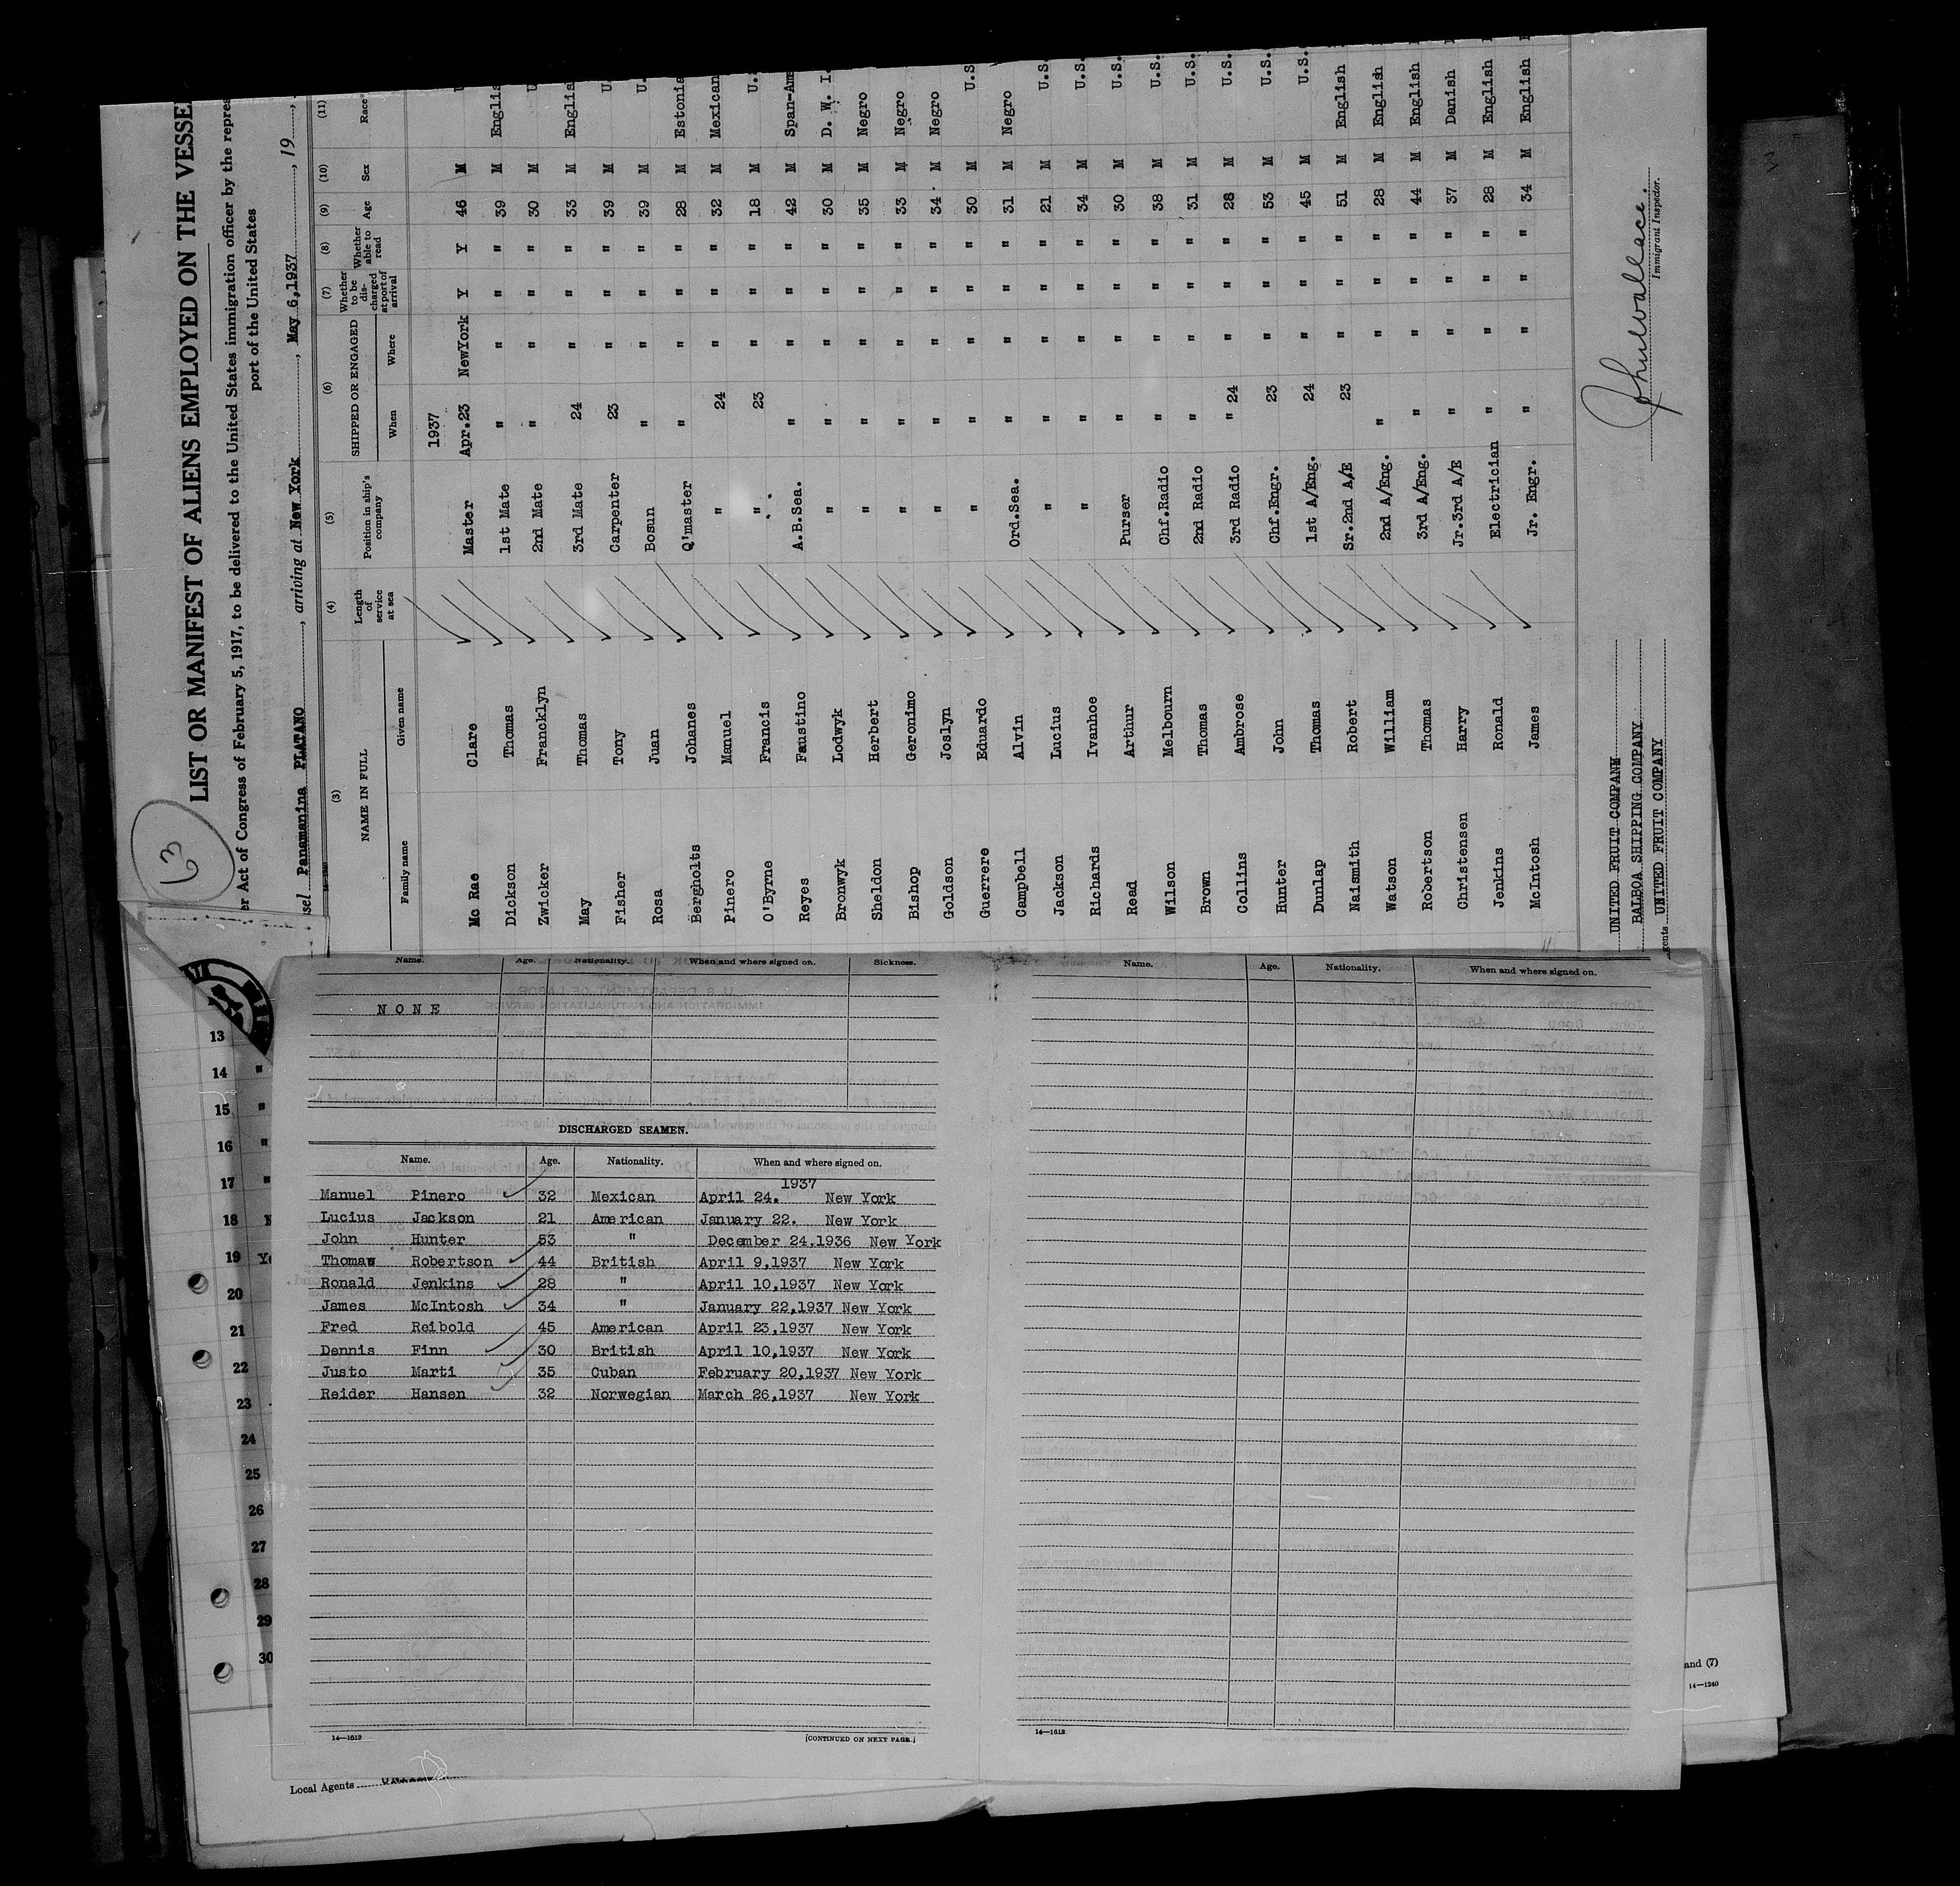 63
LIST OR MANIFEST OF ALIENS EMPLOYED ON THE VESSE
er Act of Congress of February 5, 1917, to be delivered to the United States immigration officer by the repres
port of the United States
sel Panamanina PLATANO, arriving at New York, May 6,1937, 19
(3) (4) (5) (6) (7) (8) (9) (10) (11)
NAME IN FULL Length of service at sea Position in ship's company SHIPPED OR ENGAGED Whether to be discharged at port of arrival Whether able to read Age Sex Race
Family name Given name When Where
1937
Mc Rae Clare Master Apr.23 NewYork Y Y 46 M U
Dickson Thomas 1st Mate " " " " 39 M Englis
Zwicker Francklyn 2nd Mate " " " " 30 M U
May Thomas 3rd Mate 24 " " " 33 M English
Fisher Tony Carpenter 23 " " " 39 M U.
Rosa Juan Bosun " " " " 39 M U.
Bergholts Johanes Q'master " " " " 28 M Estonia
Pinero Manuel " 24 " " " 32 M Mexican
O'Byrne Francis " 23 " " " 18 M U.
Reyes Faustino A.B.Sea. " " " " 42 M Span-Ame
Bronwyk Lodwyk " " " " " 30 M D. W. I.
Sheldon Herbert " " " " " 35 M Negro
Bishop Geronimo " " " " " 33 M Negro
Goldson Joslyn " " " " " 34 M Negro
Guerrere Eduardo " " " " " 30 M U.S
Campbell Alvin Ord.Sea. " " " " 31 M Negro
Jackson Lucius " " " " " 21 M U.S.
Richards Ivanhoe " " " " " 34 M U.S.
Read Arthur Purser " " " " 30 M U.S.
Wilson Melbourn Chf.Radio " " " " 38 M U.S.
Brown Thomas 2nd Radio " " " " 31 M U.S.
Collins Ambrose 3rd Radio " 24 " " " 28 M U.S.
Hunter John Chf.Engr. 23 " " " 53 M U.S.
Dunlap Thomas 1st A/Eng. 24 " " " 45 M U.S.
Naismith Robert Sr.2nd A/E 23 " " " 51 M English
Watson William 2nd A/Eng. " " " " 28 M English
Robertson Thomas 3rd A/Eng. " " " " 44 M English
Christensen Harry Jr.3rd A/E " " " " 37 M Danish
Jenkins Ronald Electrician " " " " 28 M English
McIntosh James Jr. Engr. " " " " 34 M English
UNITED FRUIT COMPANY
BALBOA SHIPPING COMPANY
gents UNITED FRUIT COMPANY
John Wallace.
Immigrant Inspector.
Name. Age. Nationality. When and where signed on. Sickness.
NONE
DISCHARGED SEAMEN.
Name. Age. Nationality. When and where signed on.
1937
Manuel Pinero 32 Mexican April 24. New York
Lucius Jackson 21 American January 22. New York
John Hunter 53 " December 24,1936 New York
Thomas Robertson 44 British April 9,1937 New York
Ronald Jenkins 28 " April 10,1937 New York
James McIntosh 34 " January 22,1937 New York
Fred Reibold 45 American April 23,1937 New York
Dennis Finn 30 British April 10,1937 New York
Justo Marti 35 Cuban February 20,1937 New York
Reider Hansen 32 Norwegian March 26,1937 New York
14—1612
[CONTINUED ON NEXT PAGE.]
Name. Age. Nationality. When and where signed on.
14—1612
13
14 "
15 "
16 "
17 "
18 N
19 Yo
20
21
22
23
24
25
26
27
28
29
30
Local Agents
and (7)
14—1240